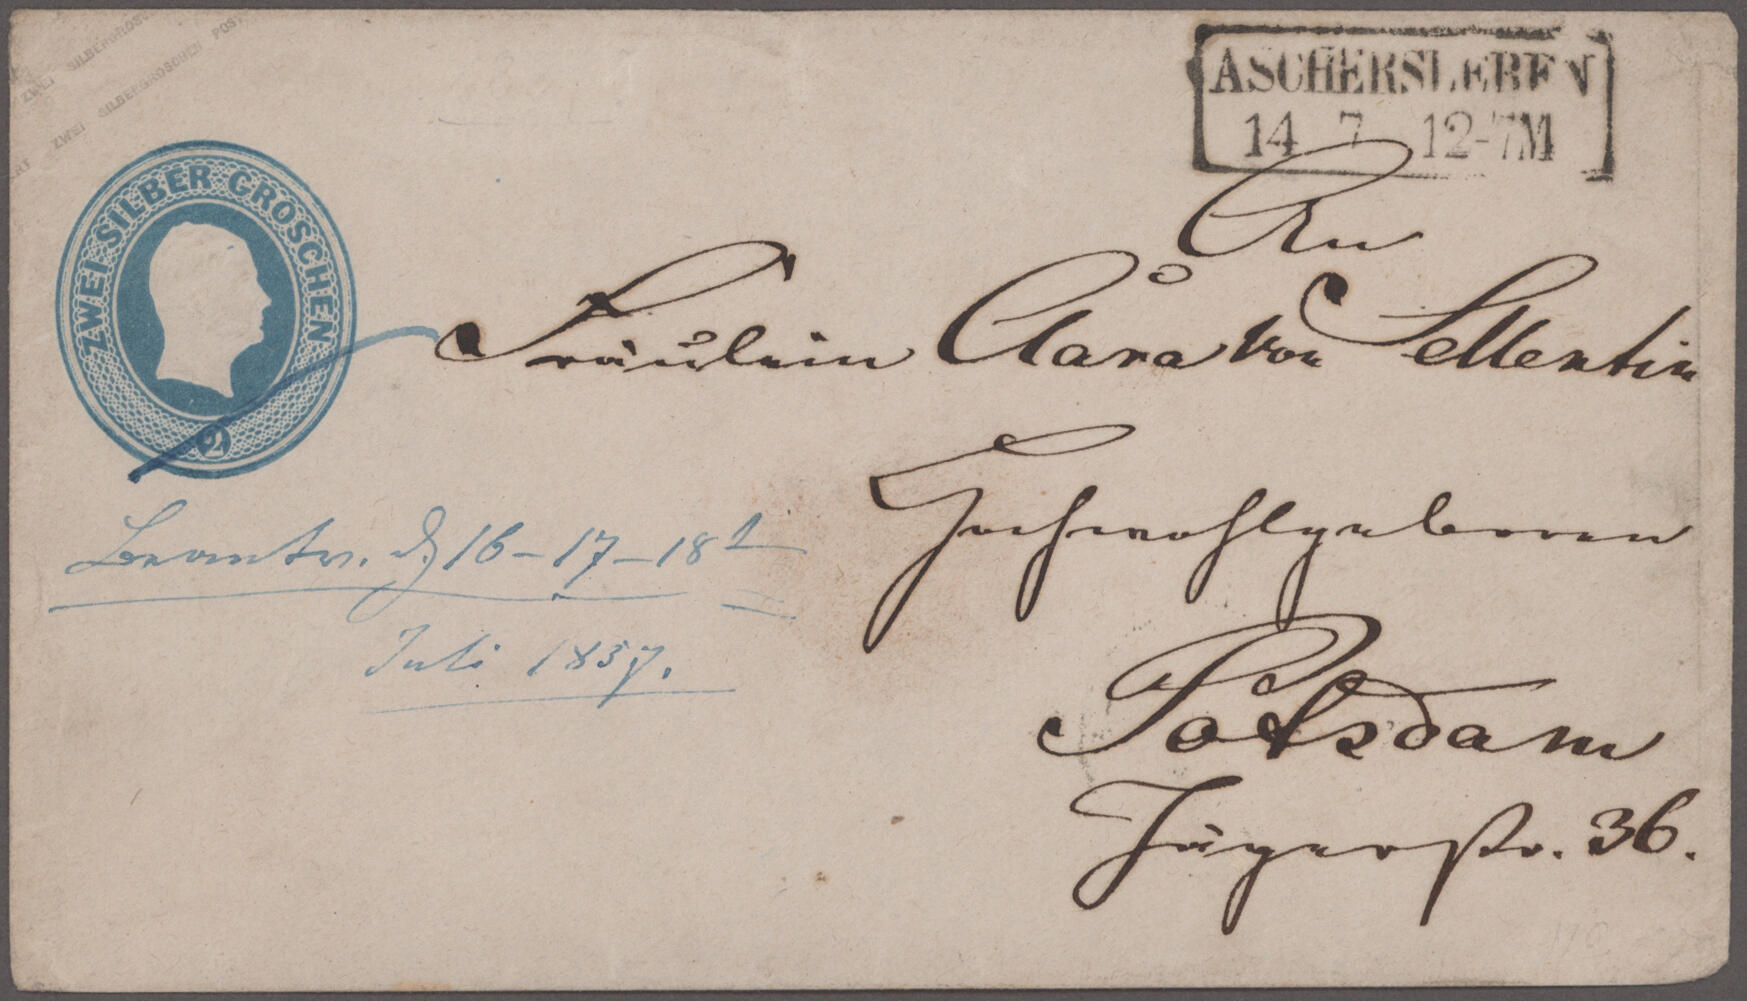 ZWEI SILBERGROSCHEN
ZWEI SILBERGROSCHEN POST
ASCHERSLEBEN
14 7 12-7M
ZWEI SILBER GROSCHEN
2
An
Fräulein Clara von Sellentin
Hochwohlgeboren
Beantw. d 16-17-18t
Juli 1857.
Potsdam
Jägerstr. 36.